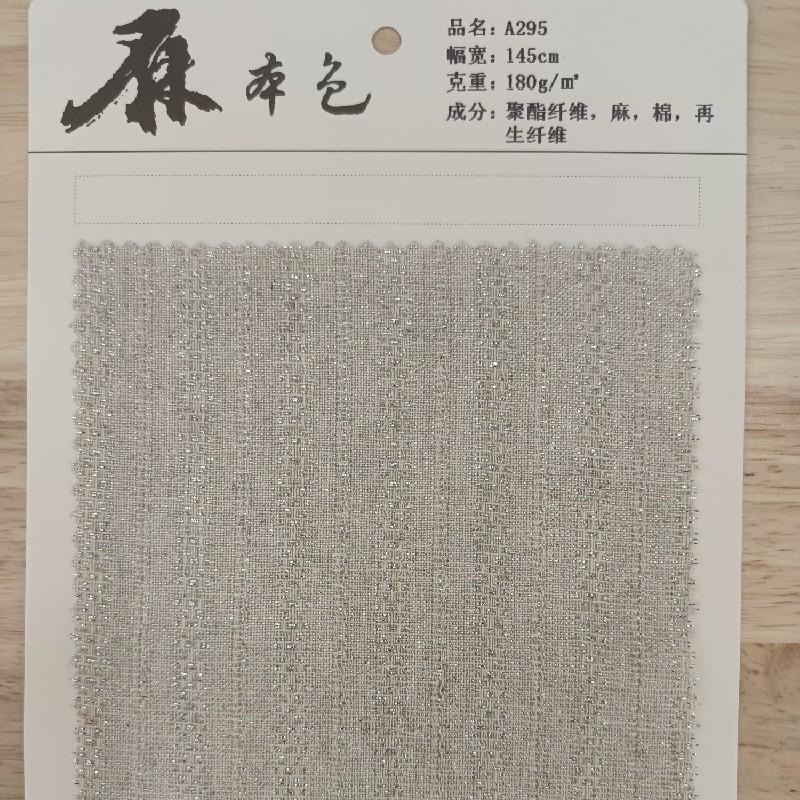 麻本色
品名：A295
幅宽：145cm
克重：180g/m²
成分：聚酯纤维，麻，棉，再
生纤维